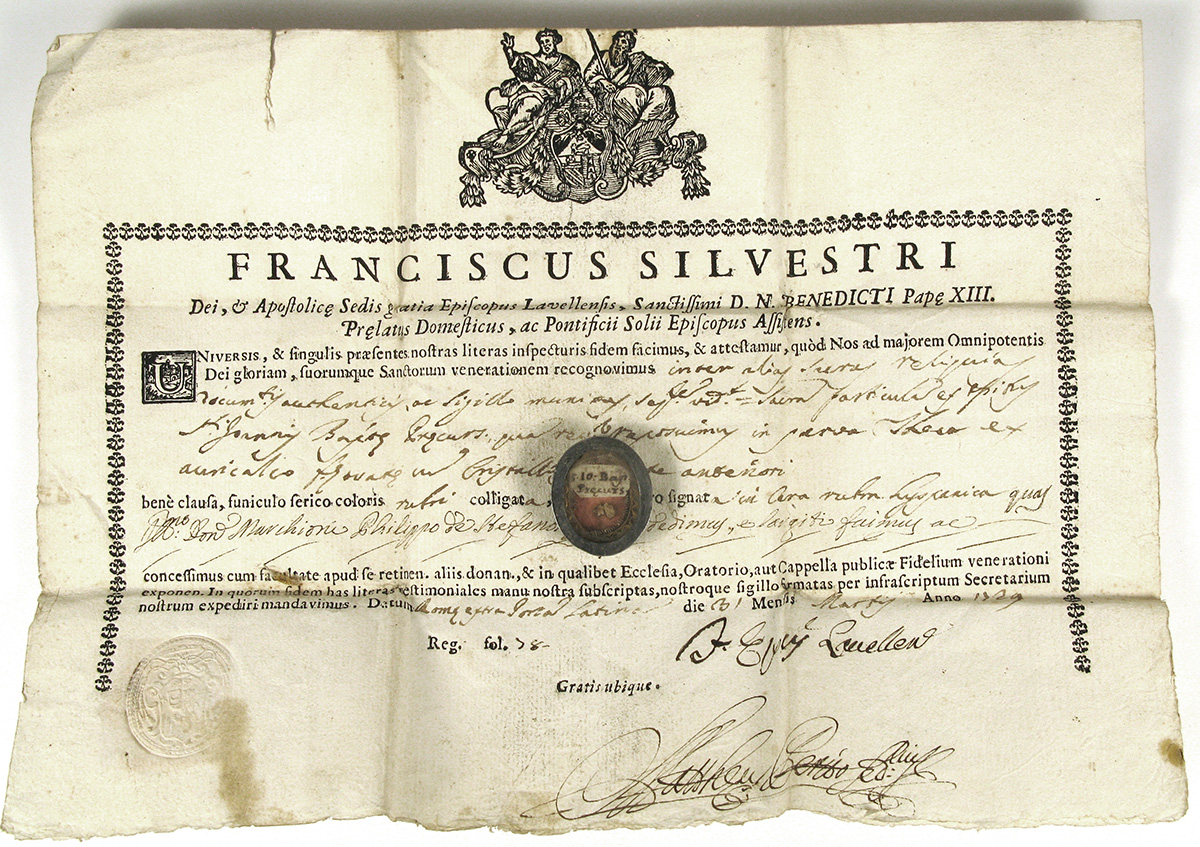 FRANCISCUS SILVESTRI
Dei, & Apostolicę Sedis gratia Episcopus Lavellensis, Sanctissimi D. N. BENEDICTI Papę XIII.
Pręlatus Domesticus, ac Pontificii Solii Episcopus Assistens.
UNIVERSIS, & singulis præsentes nostras literas inspecturis fidem facimus, & attestamur, quòd Nos ad majorem Omnipotentis
Dei gloriam, suorumque Sanctorum venerationem recognovimus inter alias sacras reliquias
authenticis, ac sigillo munitas, Sacra particula ex
in parva Theca ex
auricalco
S. Io. Bap
Precurs.
benè clausa, funiculo serico coloris rubri colligata, signata in cera rubra hyspanica quas
Marchioni Philippo de et largiti fuimus ac
concessimus cum facultate apud se retinen. aliis donan., & in qualibet Ecclesia, Oratorio, aut Cappella publicæ Fidelium venerationi
exponen. In quorum fidem has literas testimoniales manu nostra subscriptas, nostroque sigillo firmatas per infrascriptum Secretarium
nostrum expediri mandavimus. Datum Romę extra Porta Latina die 31 Mensis Martij Anno
Reg. fol. 78
Gratis ubique.